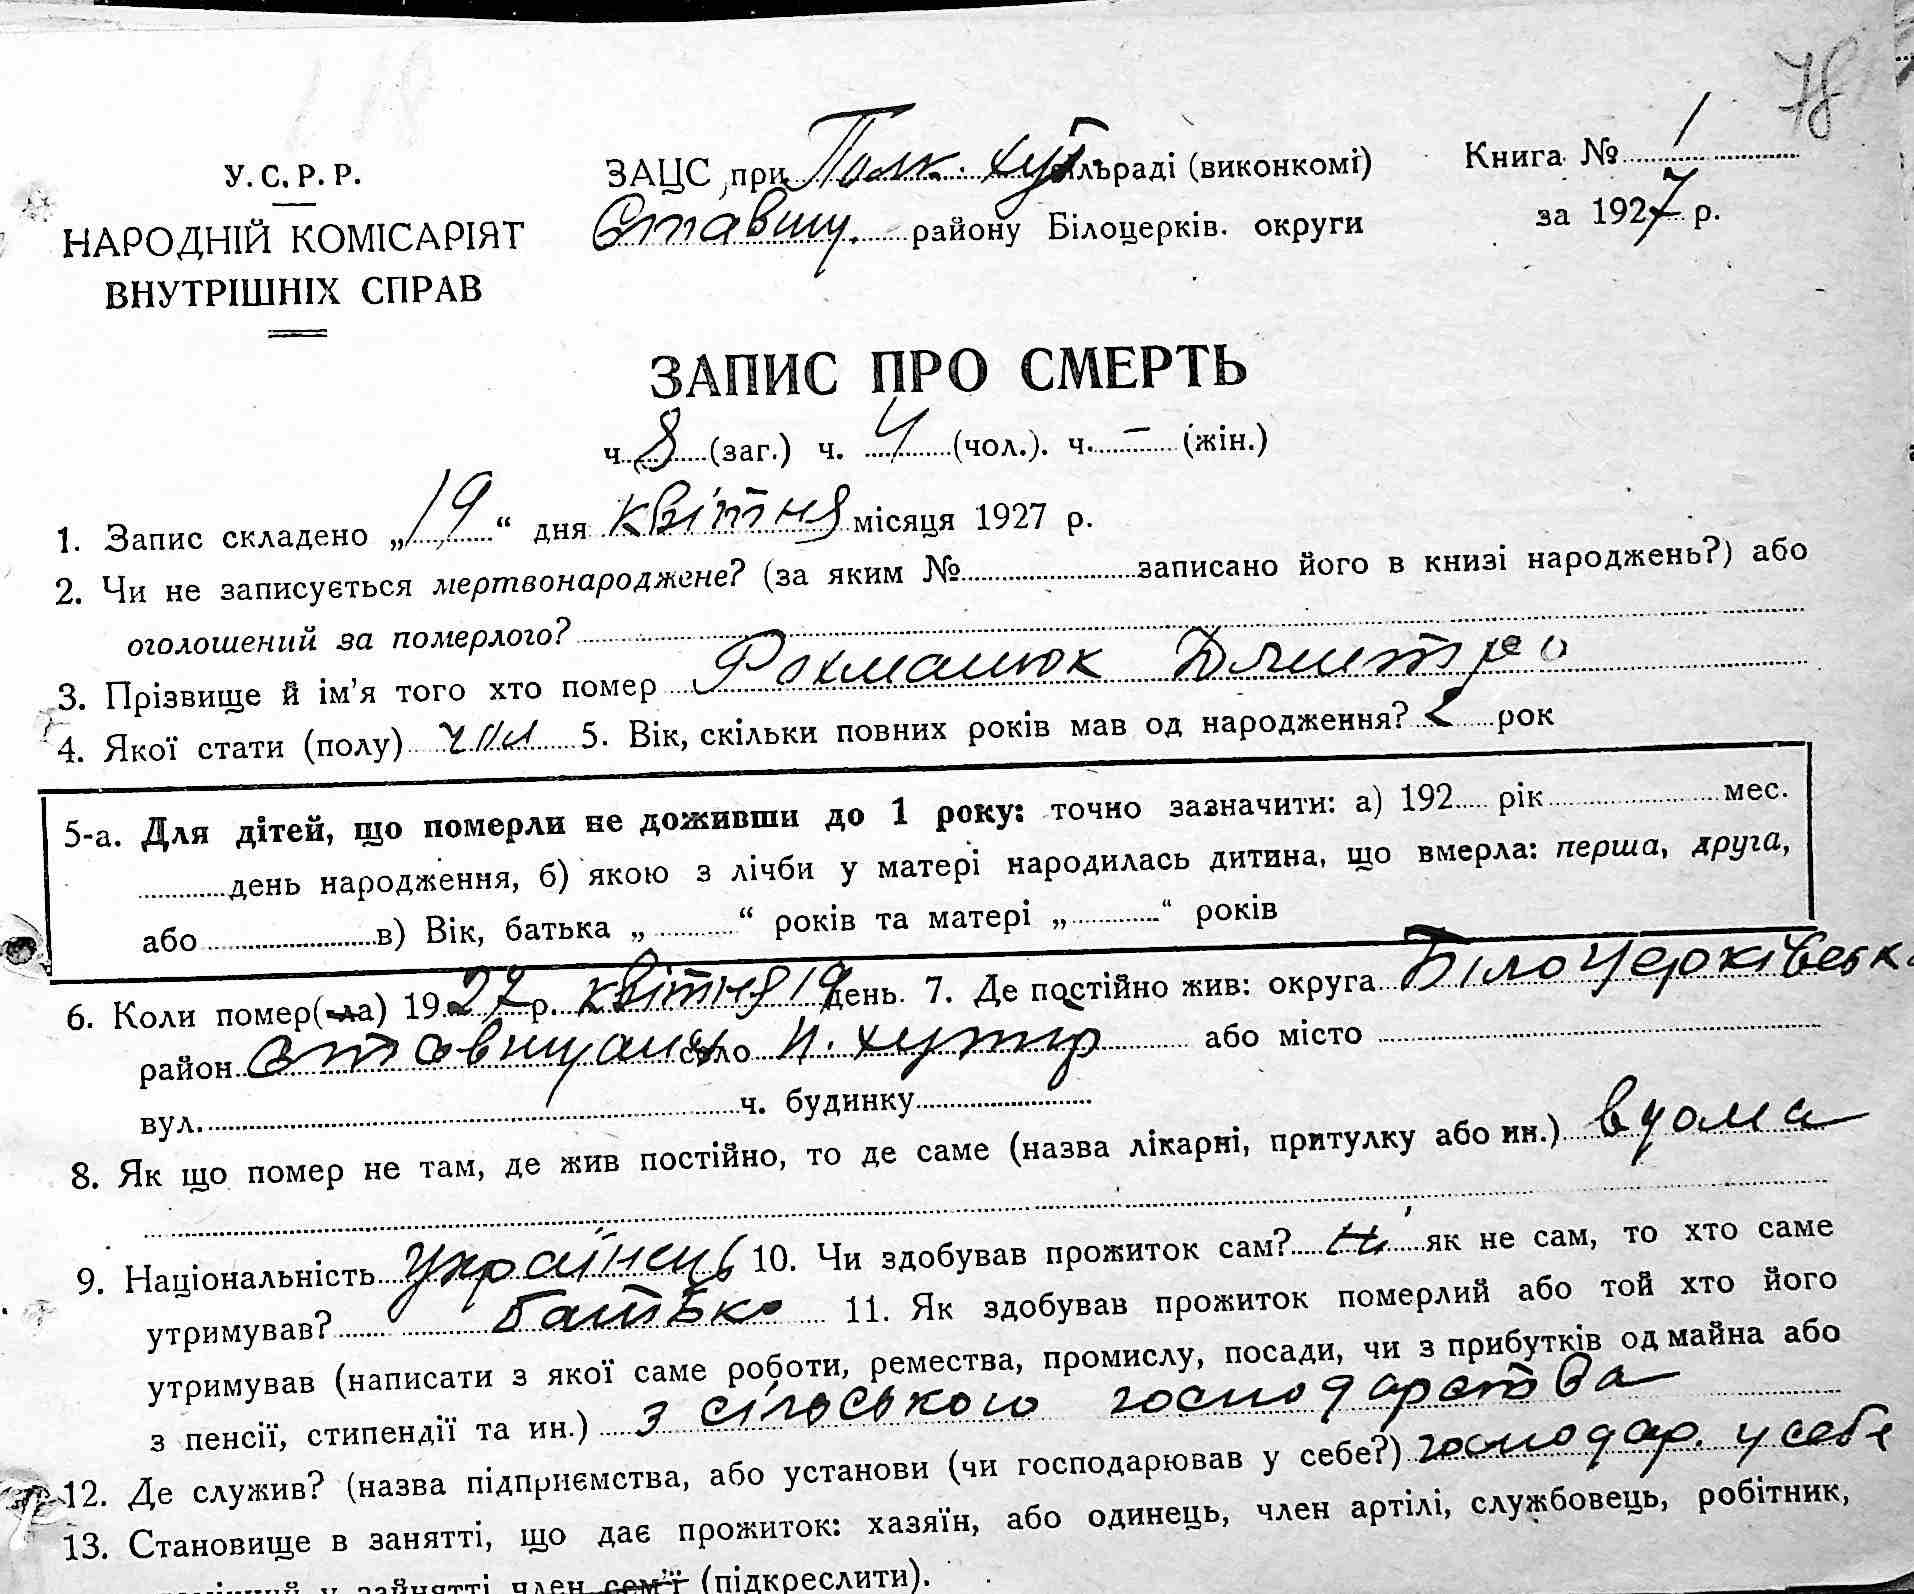 78
У. С. Р. Р.
НАРОДНІЙ КОМІСАРІЯТ
ВНУТРІШНІХ СПРАВ
ЗАЦС при Полк. хут. сільраді (виконкомі)
Ставищ. району Білоцерків. округи
Книга № 1
за 1927 р.
ЗАПИС ПРО СМЕРТЬ
ч. 8 (заг.) ч. 4 (чол.). ч. – (жін.)
1. Запис складено „19“ дня квітня місяця 1927 р.
2. Чи не записується мертвонароджене? (за яким № записано його в книзі народжень?) або
оголошений за померлого?
3. Прізвище й ім'я того хто помер Рохманюк Дмитро
4. Якої стати (полу) чол 5. Вік, скільки повних років мав од народження? рок
5-а. Для дітей, що померли не доживши до 1 року: точно зазначити: а) 192 рік мес.
день народження, б) якою з лічби у матері народилась дитина, що вмерла: перша, друга,
або в) Вік, батька „ “ років та матері „ “ років
6. Коли помер(-ла) 1927 р. квітня 19 день. 7. Де постійно жив: округа Білоцерківськ.
район Ставищан село П. хутір або місто
вул. ч. будинку
8. Як що помер не там, де жив постійно, то де саме (назва лікарні, притулку або ин.) вдома
9. Національність українець 10. Чи здобував прожиток сам? ні як не сам, то хто саме
утримував? батько 11. Як здобував прожиток померлий або той хто його
утримував (написати з якої саме роботи, ремества, промислу, посади, чи з прибутків од майна або
з пенсії, стипендії та ин.) з сільського господарства
12. Де служив? (назва підприємства, або установи (чи господарював у себе?) господар. у себе
13. Становище в занятті, що дає прожиток: хазяїн, або одинець, член артілі, службовець, робітник,
у зайнятті член сем'ї (підкреслити).